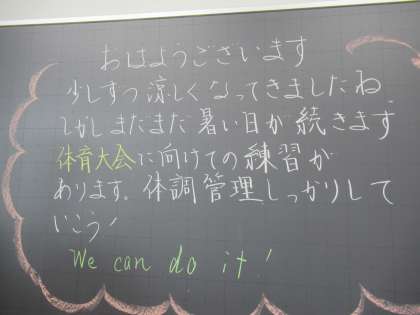 おはようございます
少しずつ涼しくなってきましたね
しかしまだまだ暑い日が続きます
体育大会に向けての練習が
あります。体調管理しっかりして
いこう!
We can do it!